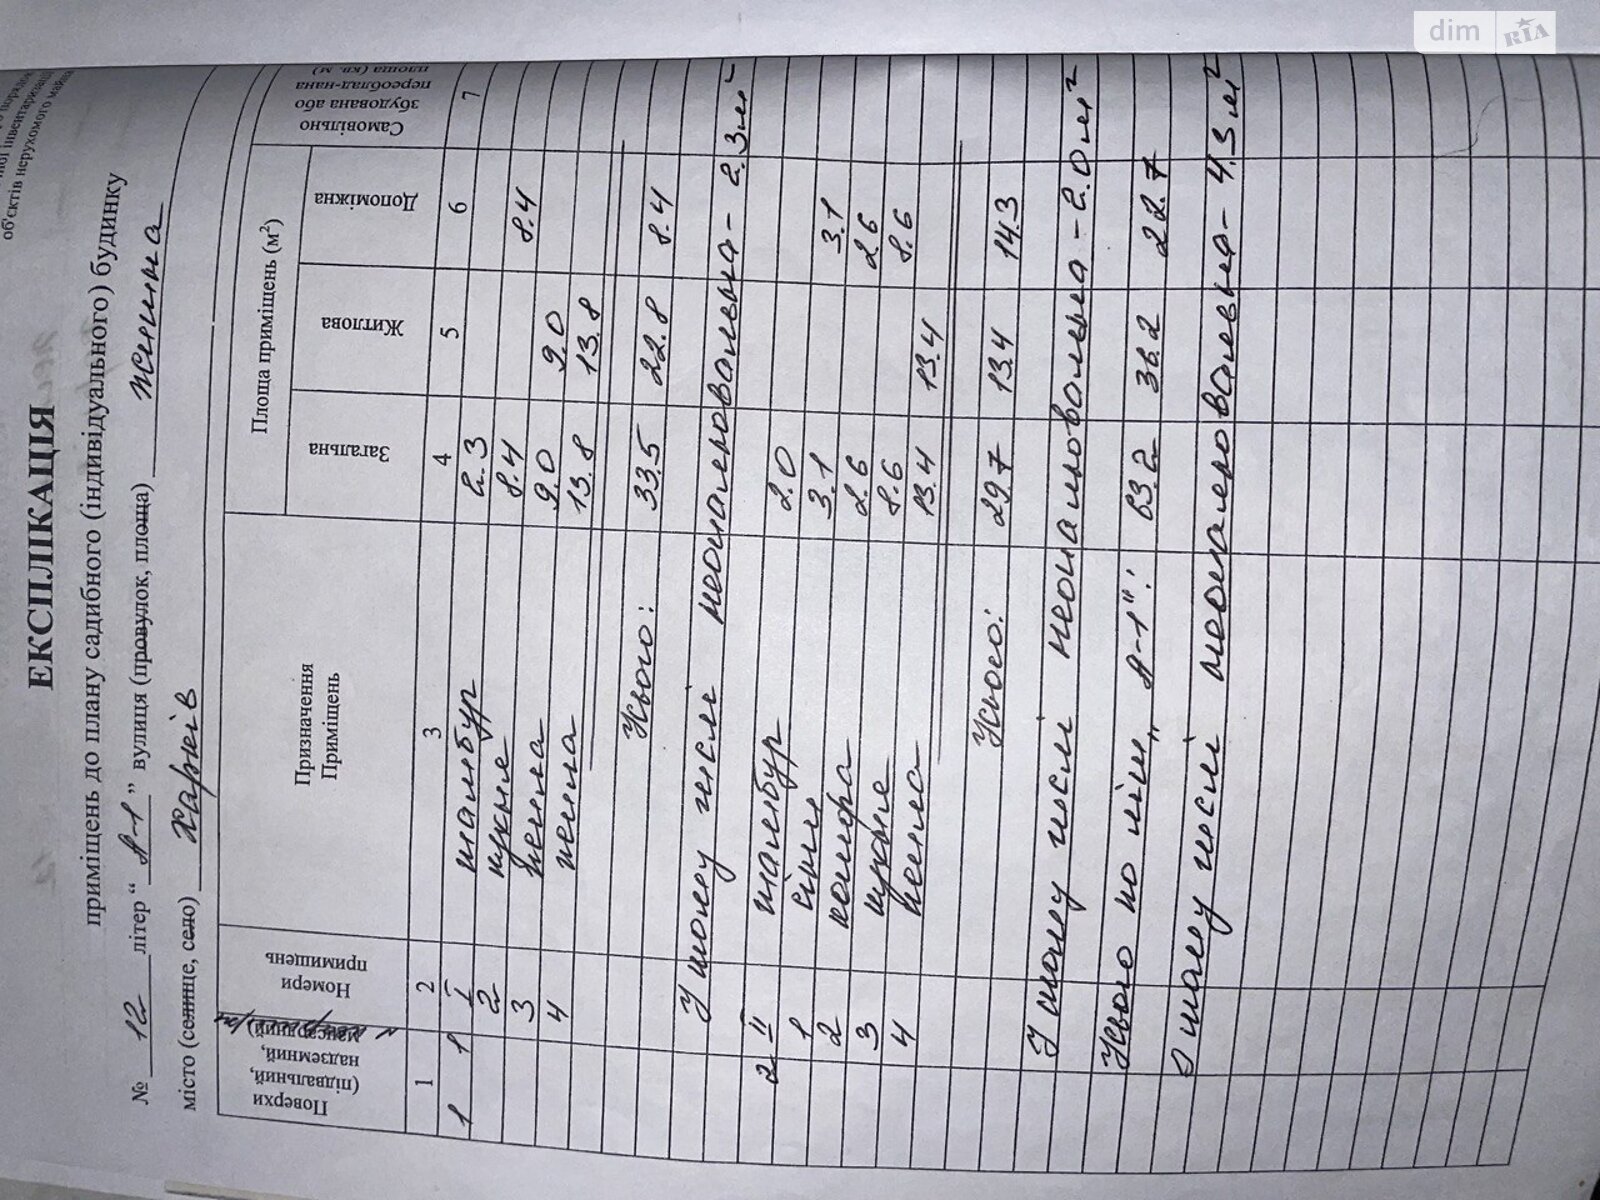 об'єктів нерухомого майна
ЕКСПЛІКАЦІЯ
приміщень до плану садибного (індивідуального) будинку
№ 12 літер “ А-1 ” вулиця (провулок, площа)
місто (селище, село) Харків
Поверхи (підвальний, надземний, мансардний)
Номери примищень
Призначення Приміщень
Площа приміщень (м²)
Загальна
Житлова
Допоміжна
Самовільно збудована або переоблад-нана площа (кв. м)
1 2 3 4 5 6 7
1 1 I тамбур 2.3
2 кухня 8.4 8.4
3 9.0 9.0
4 13.8 13.8
Усього: 33.5 22.8 8.4
У тому числі неопалювальна - 2.3 м²
2 II тамбур 2.0
1 3.1 3.1
2 2.6 2.6
3 кухня 8.6 8.6
4 13.4 13.4
Усього: 29.7 13.4 14.3
У тому числі неопалювальна - 2.0 м²
Усього по літ „А-1”: 63.2 36.2 22.7
У тому числі неопалювальна - 4.3 м²
dim RIA